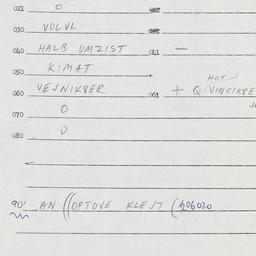 021 O
030 VOLVL
040 HALB UMZIST 041 —
050 KIMAT
HOT
060 VEJNIKBER 061 + Q VINCIKBE
070 O
080 O
901 AN ((OPTOVE KLEJT (h06020